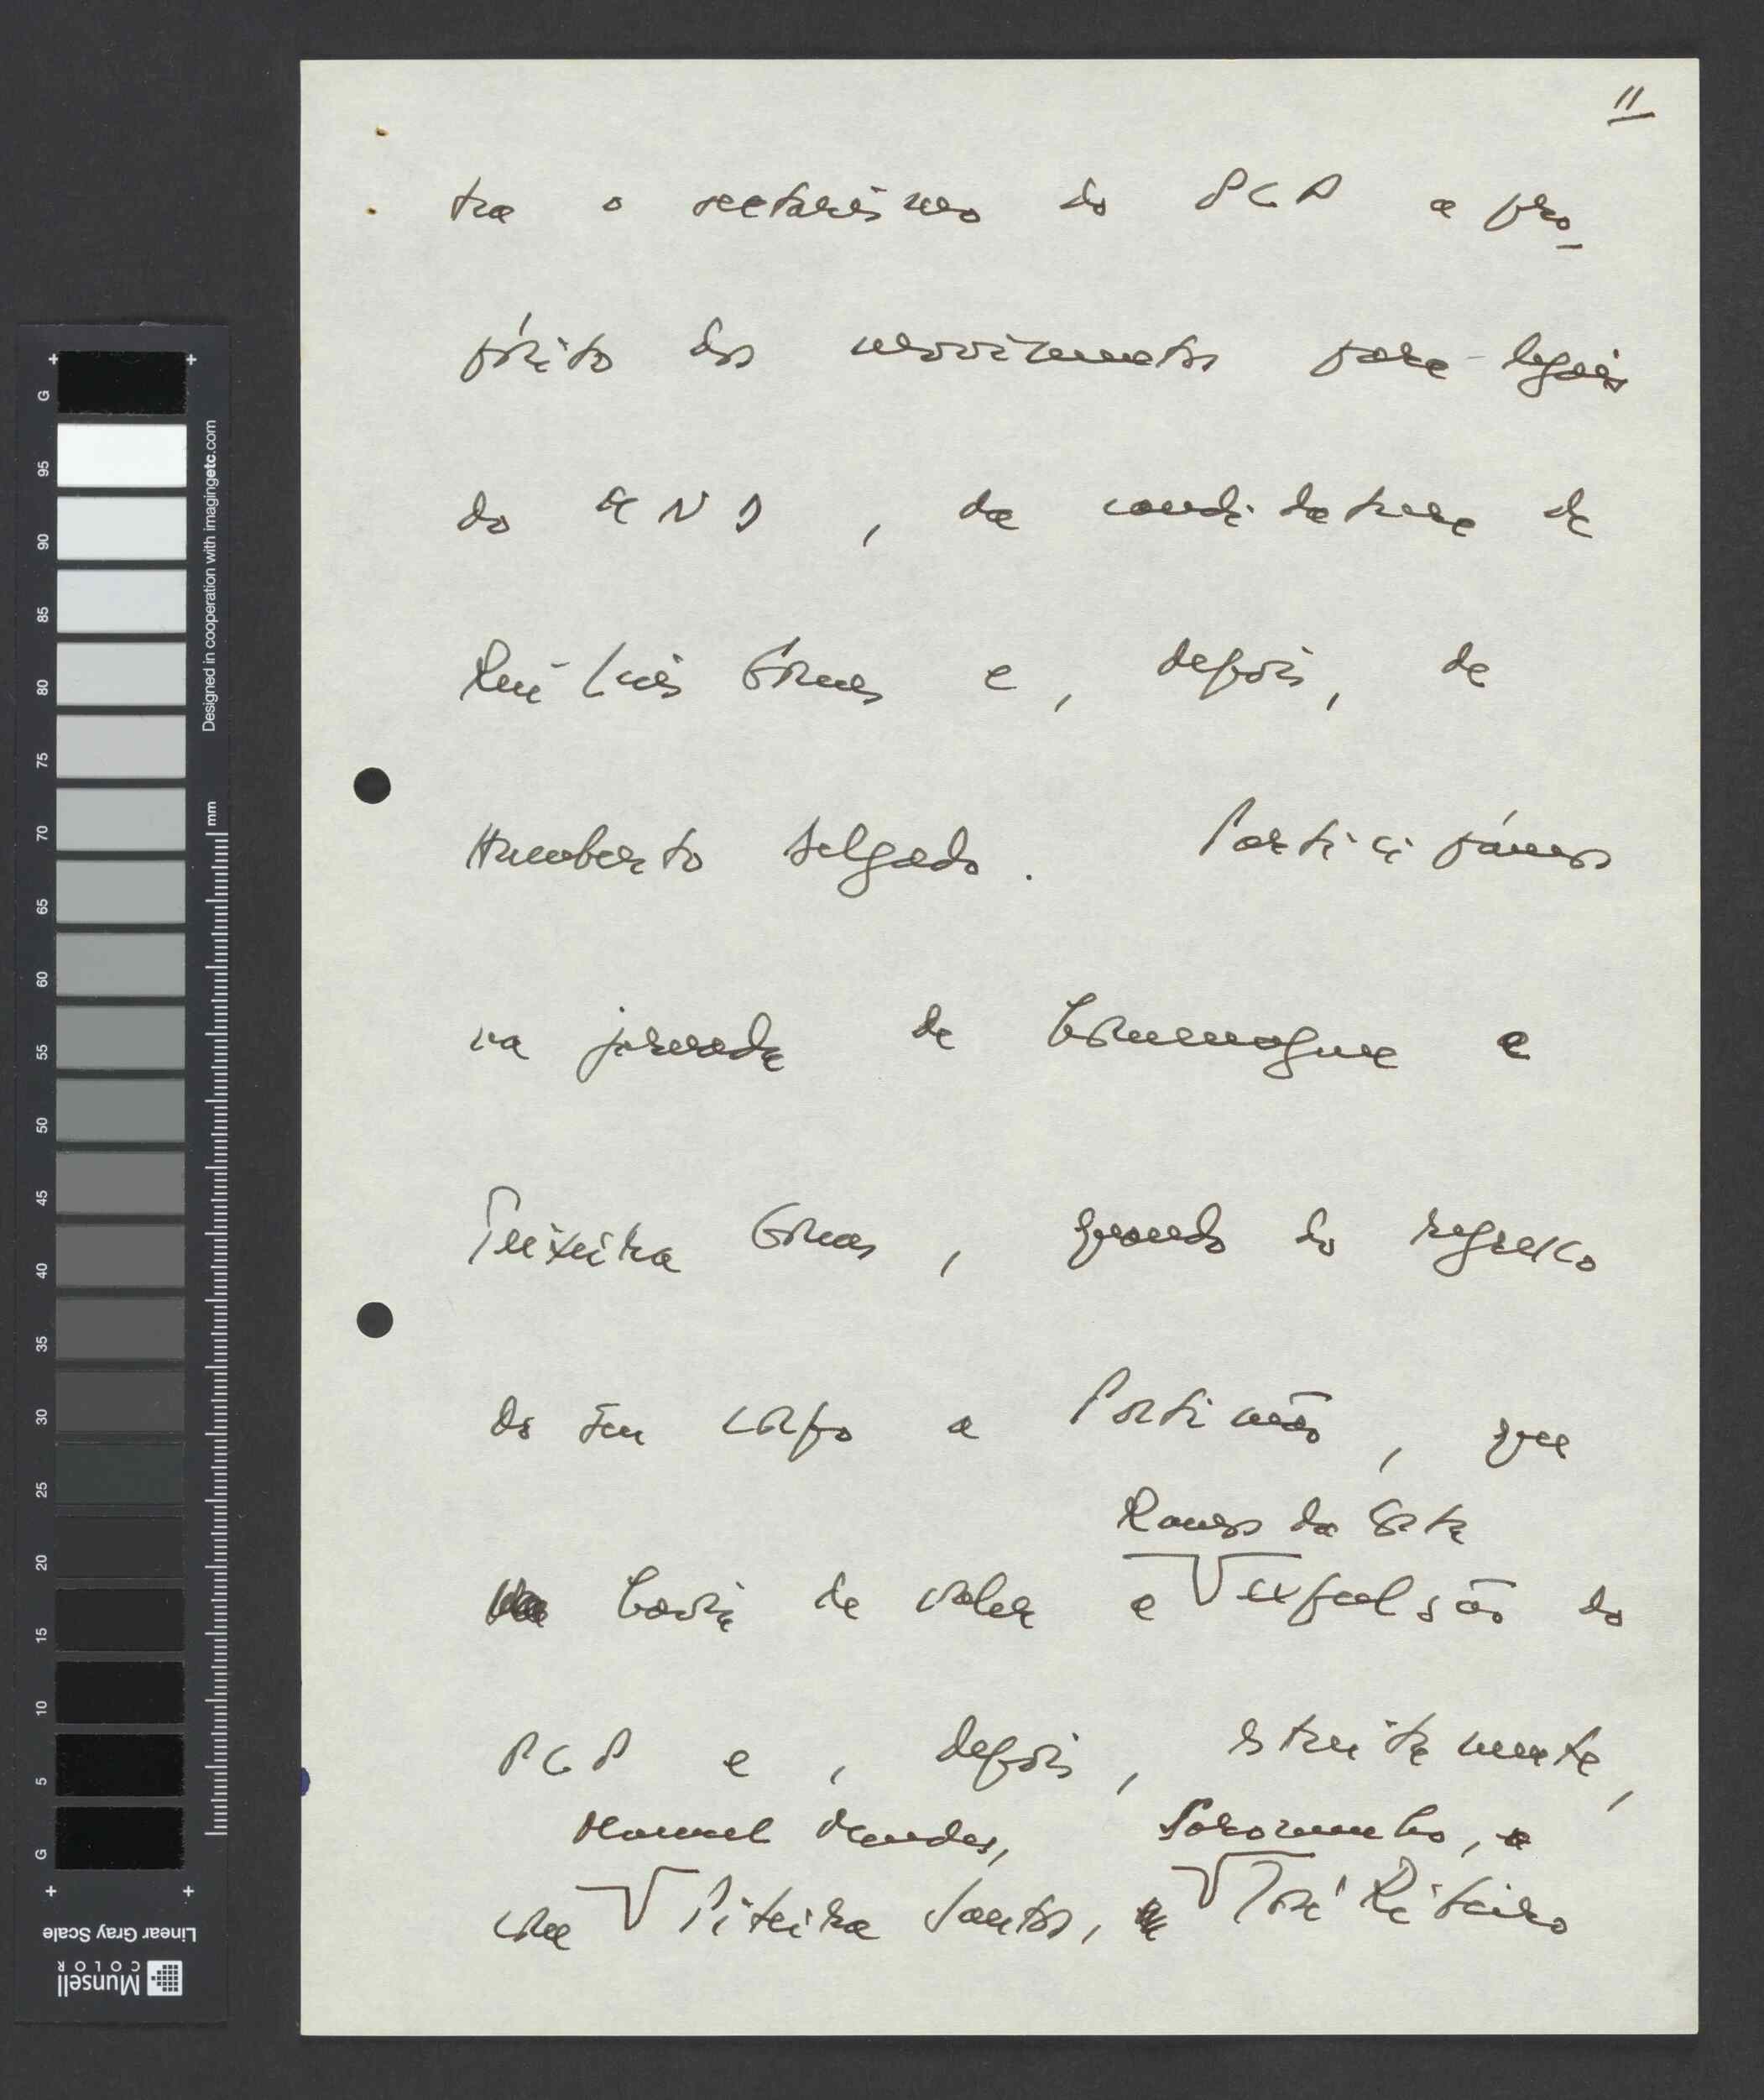 11
tra o sectarismo do PCP a pro_
pósito dos movimentos para-legais
do MND, da candidatura de
Rui Luís Gomes e, depois, de
Humberto Delgado. Participámos
na jornada de homenagem a
Teixeira Gomes, quando do regresso
do seu corpo a Portimão, que
Ramos da Costa
havia de valer a expulsão do
PCP e, depois, estreitamente,
Manuel Mendes, 
com Piteira Santos, José Ribeiro
G
95
90
85
80
75
70
65
60
55
50
45
40
35
30
25
20
15
10
5
G
mm
Designed in cooperation with imagingetc.com
Linear Gray Scale
Munsell
COLOR